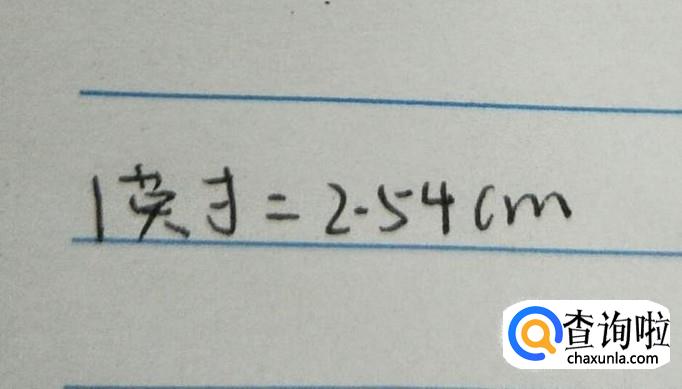 1英寸=2.54cm
查询啦
chaxunla.com